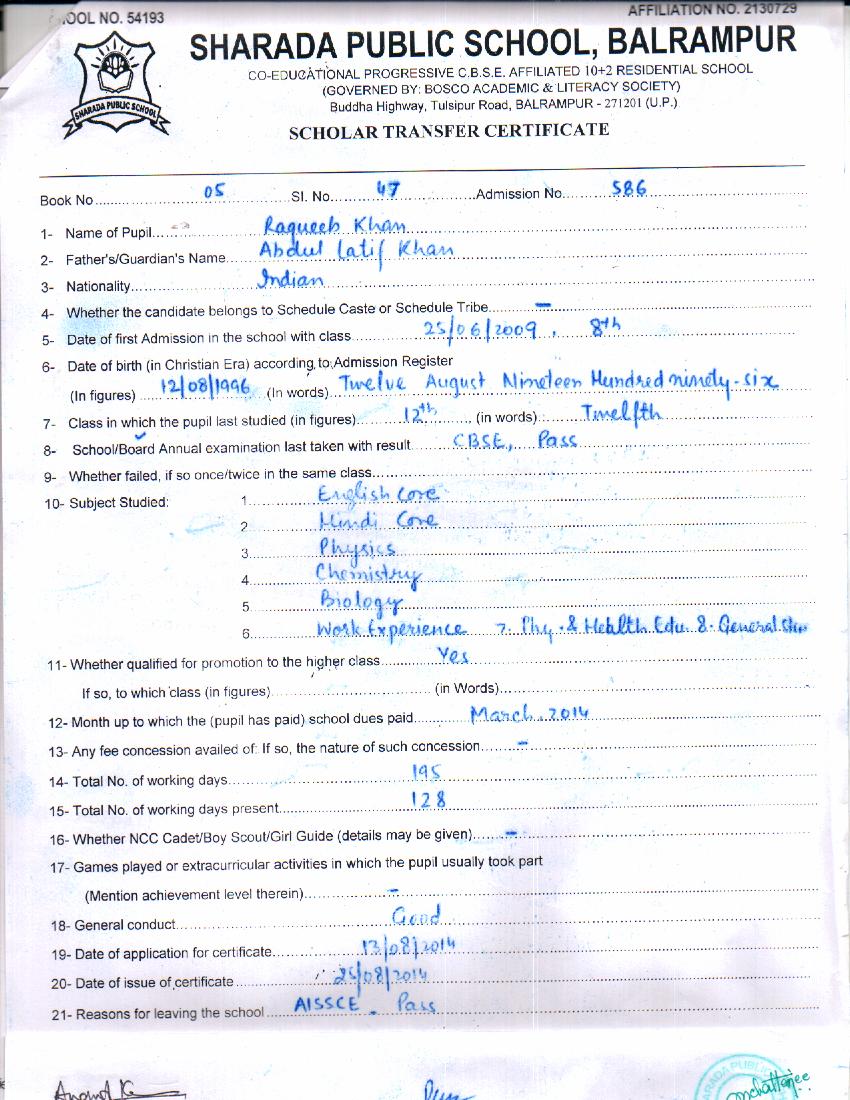 OOL NO. 54193
AFFILIATION NO. 2130729
SHARADA PUBLIC SCHOOL, BALRAMPUR
CO-EDUCATIONAL PROGRESSIVE C.B.S.E. AFFILIATED 10+2 RESIDENTIAL SCHOOL
(GOVERNED BY: BOSCO ACADEMIC & LITERACY SOCIETY)
Buddha Highway, Tulsipur Road, BALRAMPUR - 271201 (U.P.)
SHARADA PUBLIC SCHOOL
SCHOLAR TRANSFER CERTIFICATE
Book No 05 Sl. No. 47 Admission No. 586
1- Name of Pupil Raqueeb Khan
2- Father's/Guardian's Name Abdul Latif Khan
3- Nationality Indian
4- Whether the candidate belongs to Schedule Caste or Schedule Tribe –
5- Date of first Admission in the school with class 25/06/2009, 8th
6- Date of birth (in Christian Era) according to Admission Register
(In figures) 12/08/1996 (In words) Twelve August Nineteen Hundred ninety-six
7- Class in which the pupil last studied (in figures) 12th (in words) Twelfth
8- School/Board Annual examination last taken with result CBSE, Pass
9- Whether failed, if so once/twice in the same class
10- Subject Studied: 1 English Core
2 Hindi Core
3 Physics
4 Chemistry
5 Biology
6 Work Experience 7. Phy. & Health Edu. 8. General
11- Whether qualified for promotion to the higher class Yes
If so, to which class (in figures) (in Words)
12- Month up to which the (pupil has paid) school dues paid March, 2014
13- Any fee concession availed of: If so, the nature of such concession –
14- Total No. of working days 195
15- Total No. of working days present 128
16- Whether NCC Cadet/Boy Scout/Girl Guide (details may be given) –
17- Games played or extracurricular activities in which the pupil usually took part
(Mention achievement level therein) –
18- General conduct Good
19- Date of application for certificate 13/08/2014
20- Date of issue of certificate 25/08/2014
21- Reasons for leaving the school AISSCE Pass
SHARADA PUBLIC